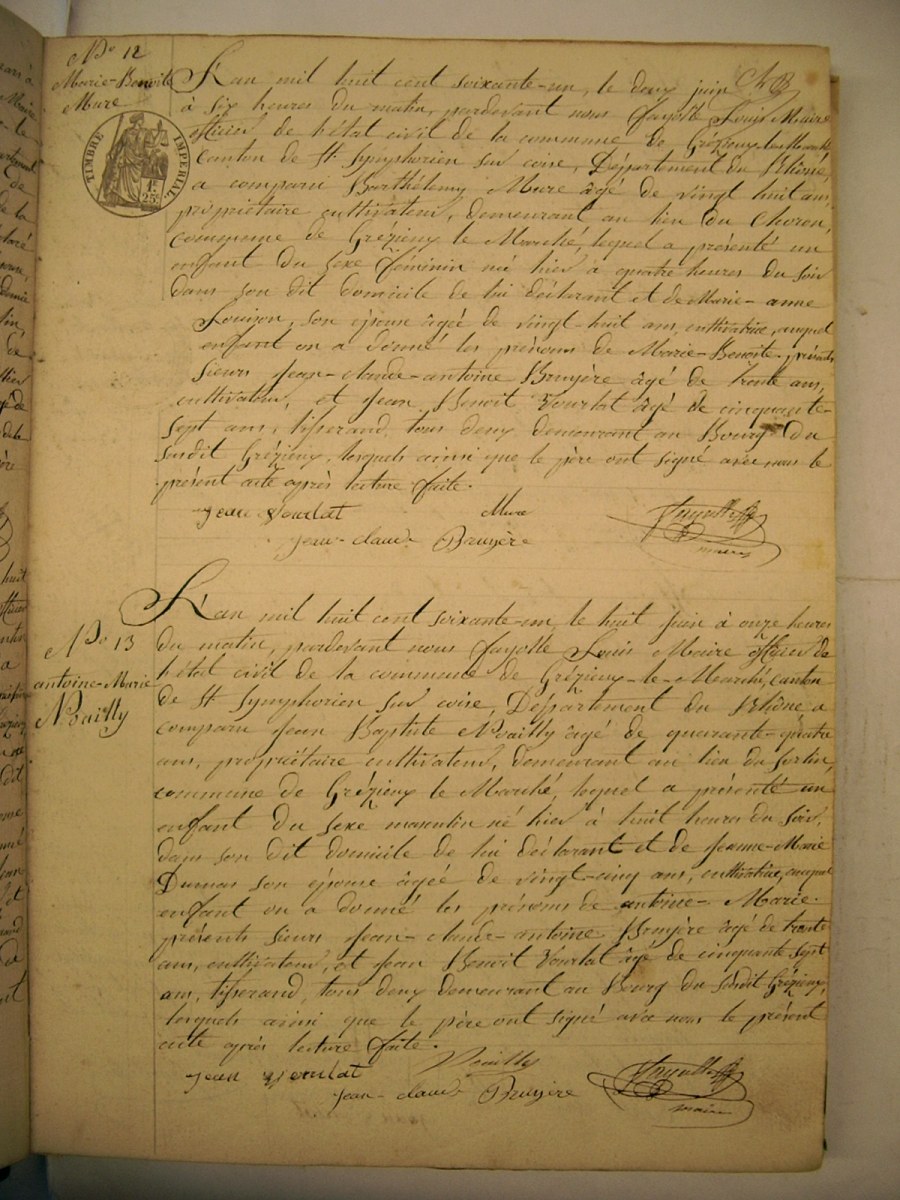 No 12
Marie-Benoite
Mure
TIMBRE IMPERIAL
1F
25c
L'an mil huit cent soixante-un, le deux juin
à six heures du matin, pardevant nous Fayolle Louis Maire
officier de l'état civil de la commune de Grézieux-le-Marché,
canton de St Symphorien sur coise, Département du Rhône,
a comparu Barthélemy Mure âgé de vingt huit ans,
propriétaire cultivateur, demeurant au lieu du
commune de Grézieux le Marché, lequel a présenté un
enfant du sexe féminin né hier à quatre heures du soir
dans son dit domicile de lui déclarant et de Marie-anne
son épouse âgée de vingt-huit ans, cultivatrice, auquel
enfant on a donné les prénoms de Marie-Benoite. présents
sieurs Jean-claude-antoine Bruyère âgé de trente ans,
cultivateur, et Jean Benoit Vourlat âgé de cinquante-
sept ans, tisserand, tous deux demeurant au Bourg du
susdit Grézieux, lesquels ainsi que le père ont signé avec nous le
présent acte après lecture faite.
Jean Vourlat Mure Fayolle
Jean-claude Bruyère maire
L'an mil huit cent soixante-un le huit juin à onze heures
No 13
antoine-Marie
Noailly
du matin, pardevant nous Fayolle Louis Maire officier de
l'état civil de la commune de Grézieux-le-Marché, canton
de St Symphorien sur coise, Département du Rhône a
comparu Jean Baptiste Noailly âgé de quarante-quatre
ans, propriétaire cultivateur, demeurant au lieu du
commune de Grézieux le Marché, lequel a présenté un
enfant du sexe masculin né hier à huit heures du soir,
dans son dit domicile de lui déclarant et de Jeanne-Marie
Durnas son épouse âgée de vingt-cinq ans, cultivatrice, auquel
enfant on a donné les prénoms de antoine-Marie.
présents sieurs Jean-claude-antoine Bruyère âgé de trente
ans, cultivateur, et Jean Benoit Vourlat âgé de cinquante sept
ans, tisserand, tous deux demeurant au Bourg du susdit Grézieux,
lesquels ainsi que le père ont signé avec nous le présent
acte après lecture faite.
Jean Vourlat Noailly Fayolle
Jean-claude Bruyère maire